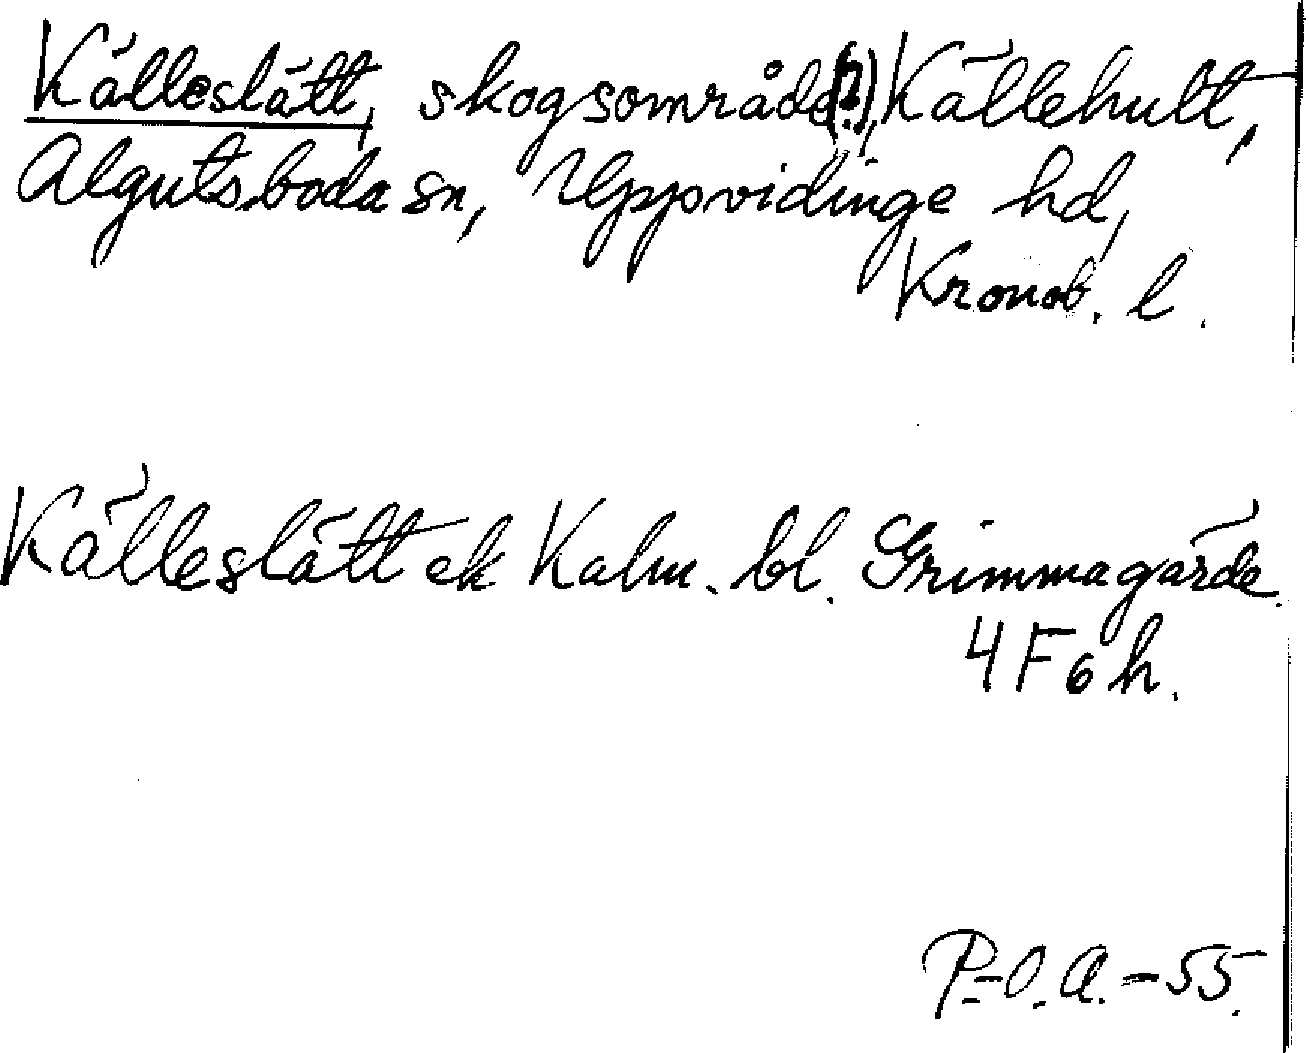 Källeslätt, skogsområde(?), Källehult,
Algutsboda sn, Uppvidinge hd,
Kronob. l.
Källeslätt ek Kalm. bl. Grimmagärde.
4 F 6 h.
P-O. A. - 55.